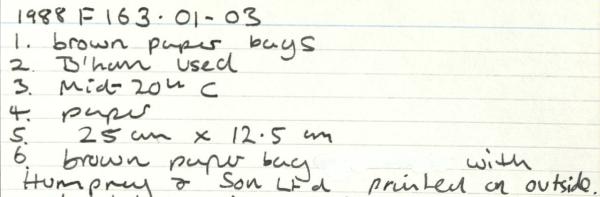 1988 F 163.01-03
1. brown paper bags
2. B'ham used
3. Mid-20th C
4. paper
5. 25 cm x 12.5 cm
6. brown paper bag with
Humprey & Son Ltd printed on outside.